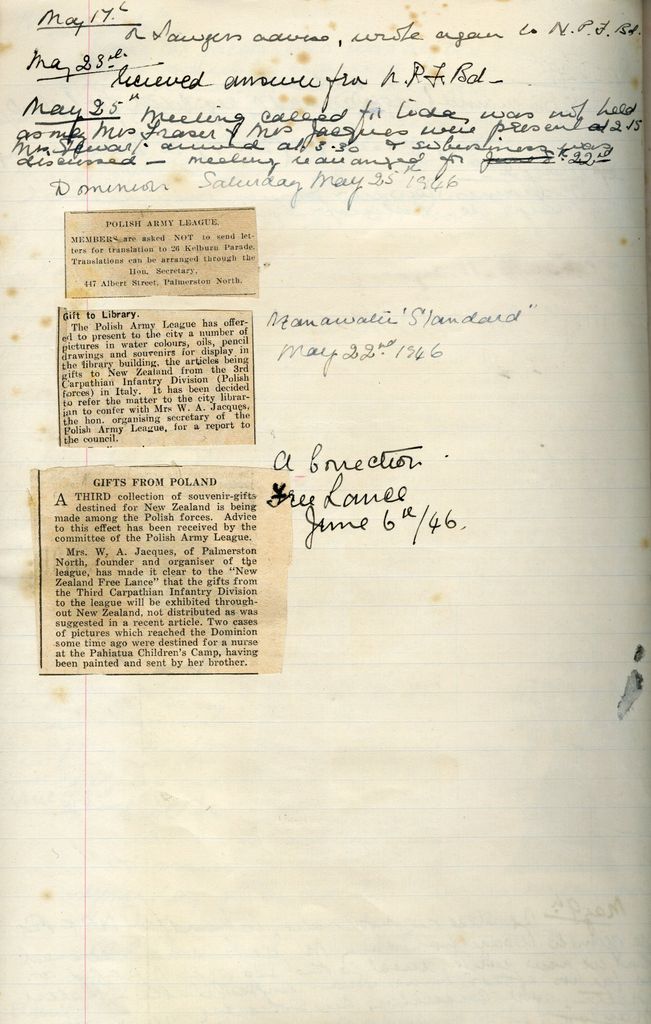 May 17th
On Lawyers advice, wrote again to N.P.F. Bd.
May 23rd.
Received answer fr N.P.F. Bd —
May 25th Meeting called for today was not held
as only Mrs Fraser & Mrs Jacques were present at 2.15
Mrs. Stewart arrived at 3.30 & business was
discussed — meeting rearranged for June 22nd
Dominion Saturday May 25th 1946
POLISH ARMY LEAGUE.
MEMBERS are asked NOT to send let-
ters for translation to 26 Kelburn Parade.
Translations can be arranged through the
Hon. Secretary,
447 Albert Street, Palmerston North.
Gift to Library.
The Polish Army League has offer-
ed to present to the city a number of
pictures in water colours, oils, pencil
drawings and souvenirs for display in
the library building, the articles being
gifts to New Zealand from the 3rd
Carpathian Infantry Division (Polish
forces) in Italy. It has been decided
to refer the matter to the city librar-
ian to confer with Mrs W. A. Jacques,
the hon. organising secretary of the
Polish Army League, for a report to
the council.
Manawatu "Standard"
May 22nd 1946
GIFTS FROM POLAND
A THIRD collection of souvenir-gifts
destined for New Zealand is being
made among the Polish forces. Advice
to this effect has been received by the
committee of the Polish Army League.
Mrs. W. A. Jacques, of Palmerston
North, founder and organiser of the
league, has made it clear to the "New
Zealand Free Lance" that the gifts from
the Third Carpathian Infantry Division
to the league will be exhibited through-
out New Zealand, not distributed as was
suggested in a recent article. Two cases
of pictures which reached the Dominion
some time ago were destined for a nurse
at the Pahiatua Children's Camp, having
been painted and sent by her brother.
A Correction.
Free Lance
June 6th/46.